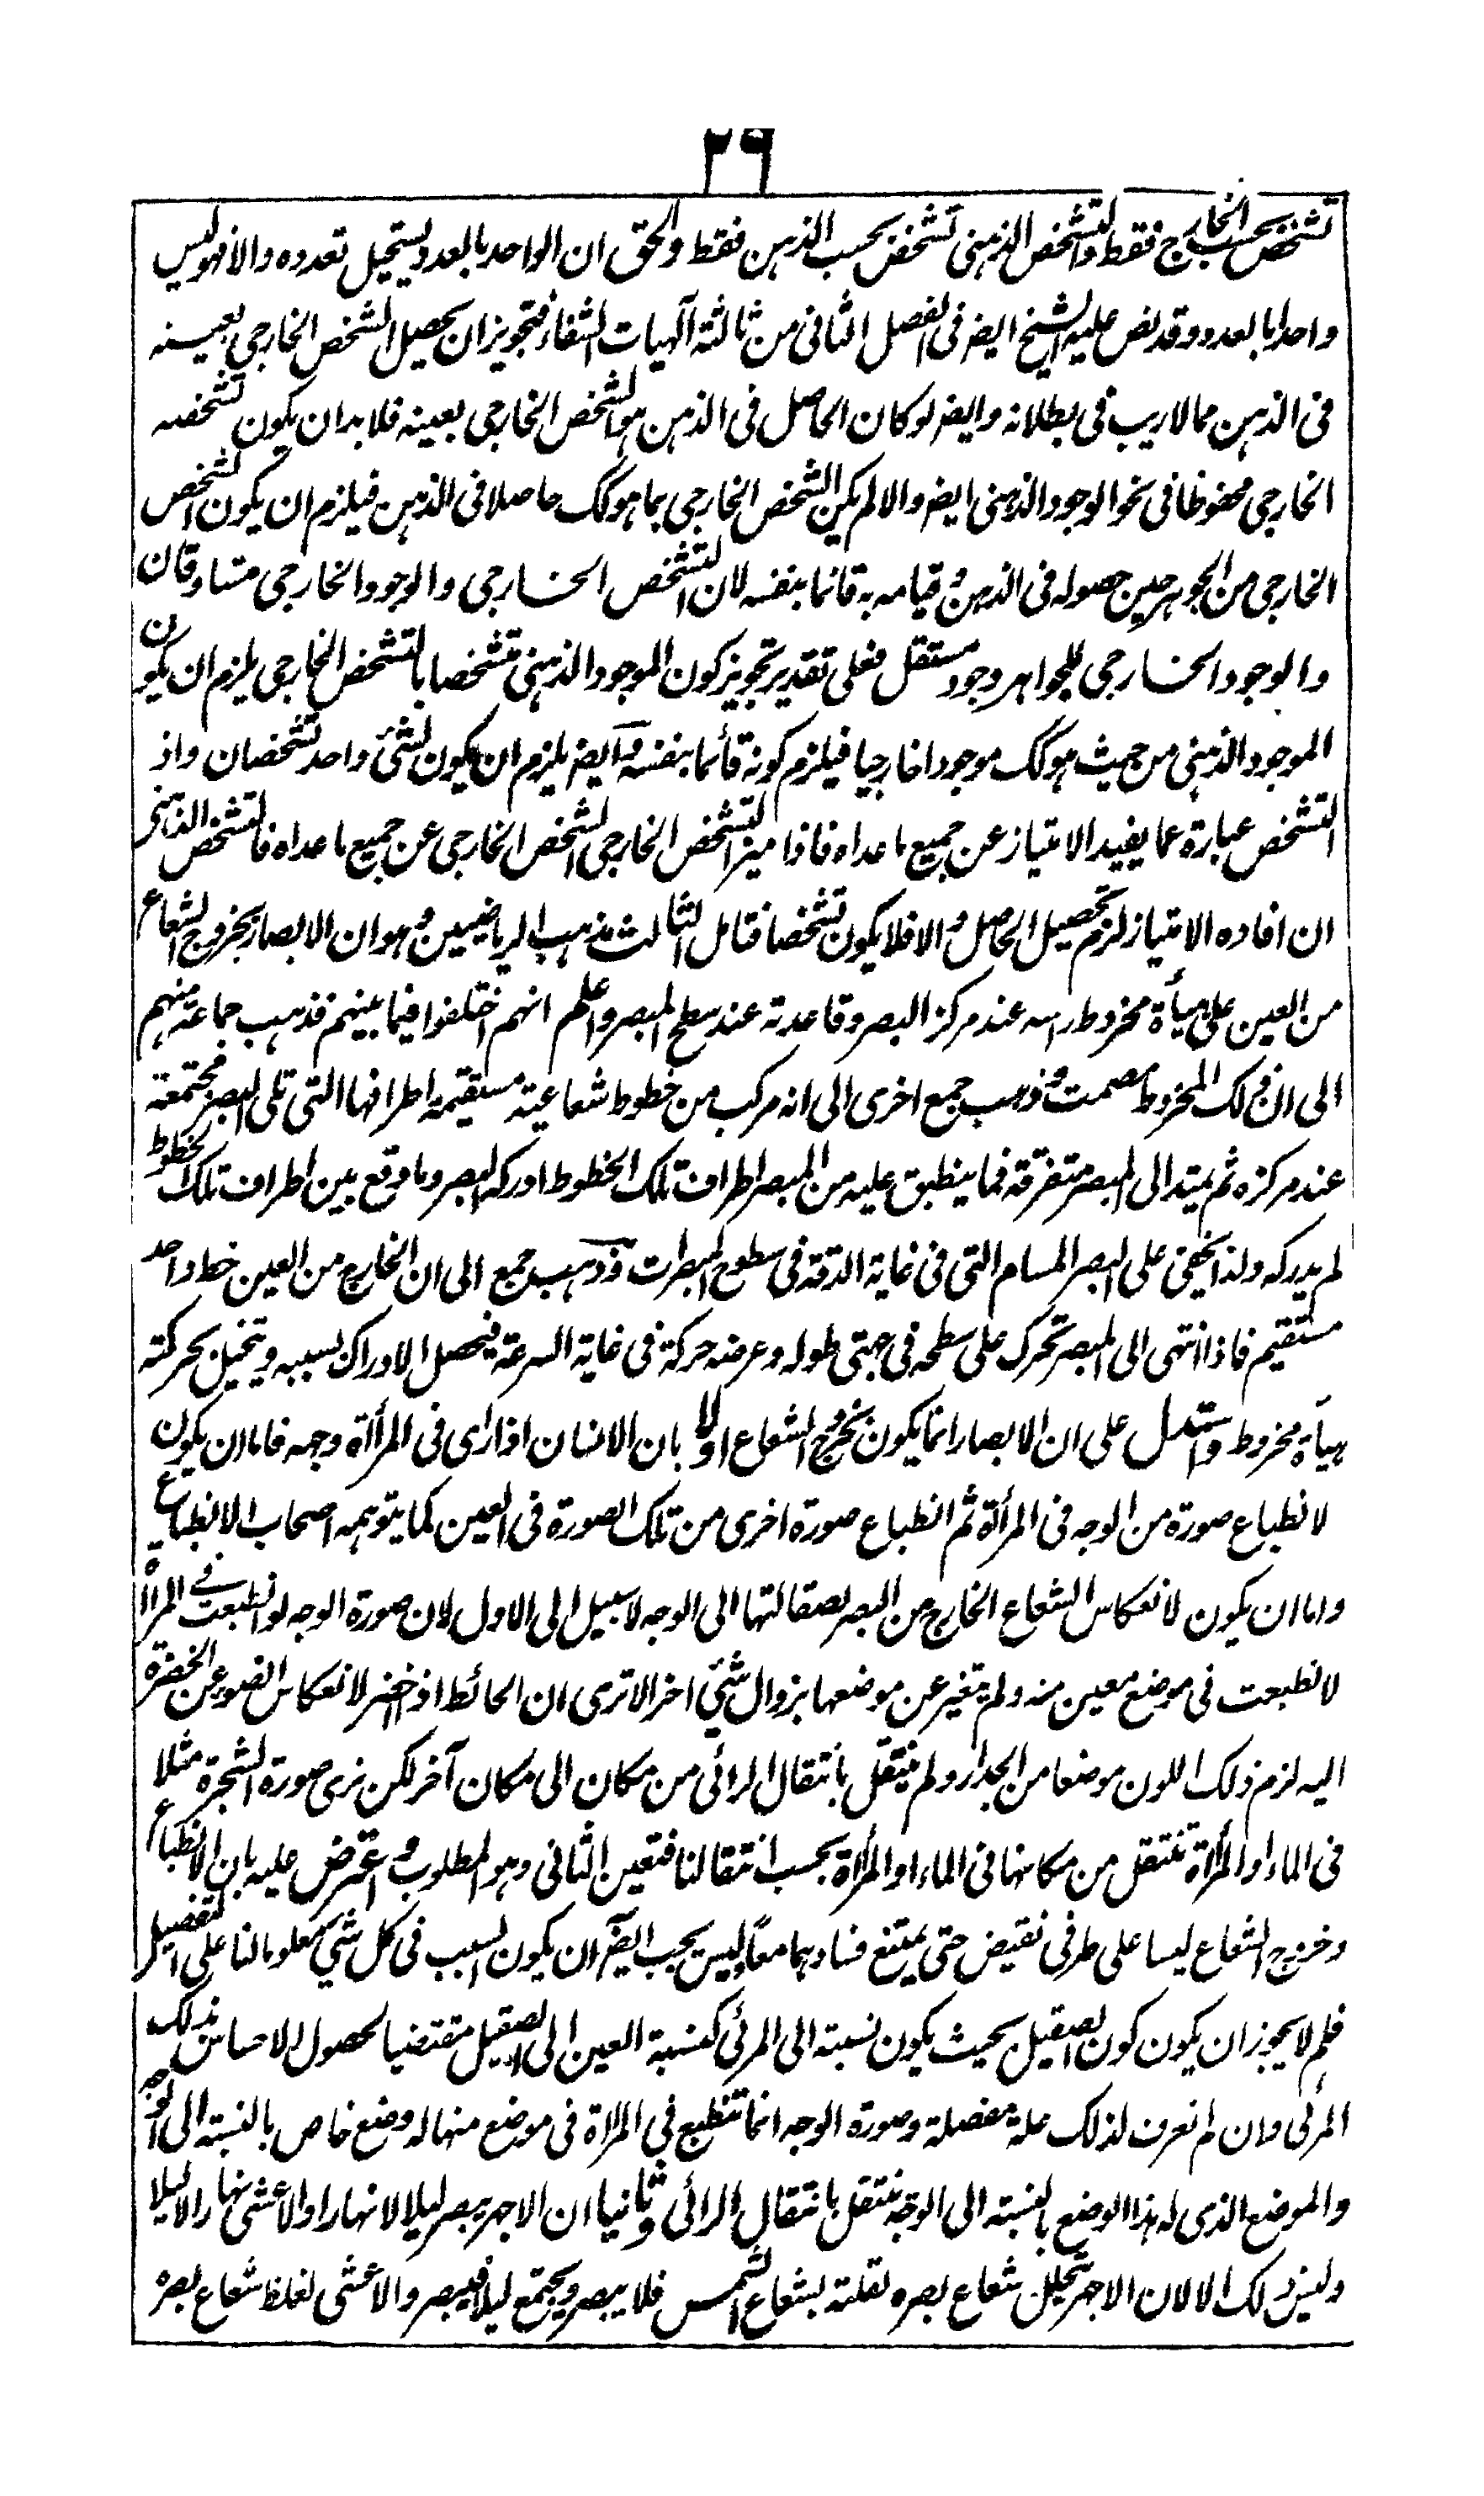 ٢٩
تشخص بحسب الخارج فقط والتشخص الذهنى تشخص بحسب الذهن فقط والحق ان الواحد بالعدد يستحيل تعدده والا فهو ليس
واحدا بالعدد وقد نص عليه الشيخ ايضر فى الفصل الثانى من ثالثة آلهيات الشفاء فتجويز ان يحصل الشخص الخارجى بعينه
فى الذهن مما لا ريب فى بطلانه وايضر لو كان الحاصل فى الذهن هو الشخص الخارجى بعينه فلا بد ان يكون تشخصه
الخارجى محفوظا فى نحو الوجود الذهنى ايضر والا لم يكن الشخص الخارجى بما هو كك حاصلا فى الذهن فيلزم ان يكون الشخص
الخارجى من الجوهر حين حصوله فى الذهن وقيامه به قائما بنفسه لان التشخص الخارجى والوجود الخارجى متساوقان
والوجود الخارجى للجواهر وجود مستقل فعلى تقدير تجويز كون الموجود الذهنى متشخصا بالتشخص الخارجى يلزم ان يكون
الموجود الذهنى من حيث هو كك موجودا خارجيا فيلزم كونه قائما بنفسه وايضر يلزم ان يكون لشئ واحد تشخصان واذ
التشخص عبارة عما يفيد الامتياز عن جميع ما عداه فاذا ميز التشخص الخارجى الشخص الخارجى عن جميع ما عداه فالتشخص الذهنى
ان افاده الامتياز لزم تحصيل الحاصل والا فلا يكون تشخصا فتامل الثالث مذهب الرياضيين وهو ان الابصار بخروج الشعاع
من العين على هيأة مخروط راسه عند مركز البصر وقاعدته عند سطح المبصر واعلم انهم اختلفوا فيما بينهم فذهب جماعة منهم
الى ان ذلك المخروط مصمت وذهب جمع اخرى الى انه مركب من خطوط شعاعية مستقيمة اطرافها التى تلى البصر مجتمعة
عند مركزه ثم يمتد الى المبصر متفرقة فما ينطبق عليه من المبصر اطراف تلك الخطوط ادركه البصر وما وقع بين اطراف تلك الخطوط
لم يدركه ولذا يخفى على البصر المسام التى فى غاية الدقة فى سطوح المبصرات وذهب جمع الى ان الخارج من العين خط واحد
مستقيم فاذا انتهى الى المبصر تحرك على سطحه فى جهتى طوله وعرضه حركة فى غاية السرعة فيحصل الادراك بسببه ويتخيل بحركته
هيأة مخروط واستدل على ان الابصار انما يكون بخروج الشعاع اولا بان الانسان اذا رأى فى المرأة وجهه فاما ان يكون
لانطباع صورة من الوجه فى المرأة ثم انطباع صورة اخرى من تلك الصورة فى العين كما يتوهمه اصحاب الانطباع
واما ان يكون لانعكاس الشعاع الخارج من البصر بصقالتها الى الوجه لا سبيل الى الاول لان صورة الوجه لو انطبعت فى المرأة
لانطبعت فى موضع معين منه ولم يتغير عن موضعها بزوال شئ اخر الا ترى ان الحائط اذ اخضر لانعكاس الضوء عن الخضرة
اليه لزم ذلك اللون موضعا من الجدار ولم ينتقل بانتقال الرائى من مكان الى مكان آخر لكن نرى صورة الشجرة مثلا
فى الماء او المرأة تنتقل من مكانها فى الماء او المرأة بحسب انتقالنا فتعين الثانى وهو المطلوب واعترض عليه بان الانطباع
وخروج الشعاع ليسا على طرفى نقيض حتى يمتنع فسادهما معا وليس يجب ايضر ان يكون السبب فى كل شئ معلوما لنا على التفصيل
فلم لا يجوز ان يكون كون الصقيل بحيث يكون نسبته الى المرئى كنسبة العين الى الصقيل مقتضيا لحصول الاحساس بذلك
المرئى وان لم نعرف لذلك علة مفصلة وصورة الوجه انما تنطبع فى المرأة فى موضع منها له وضع خاص بالنسبة الى الوجه
والموضع الذى له هذا الوضع بالنسبة الى الوجه ينتقل بانتقال الرائى وثانيا ان الاجهر يبصر ليلا لا نهارا والاعشى نهارا لا ليلا
وليس ذلك الا لان الاجهر تحلل شعاع بصره لقلته بشعاع الشمس فلا يبصر ويجتمع ليلا فيبصر والاعشى لغلظ شعاع بصره